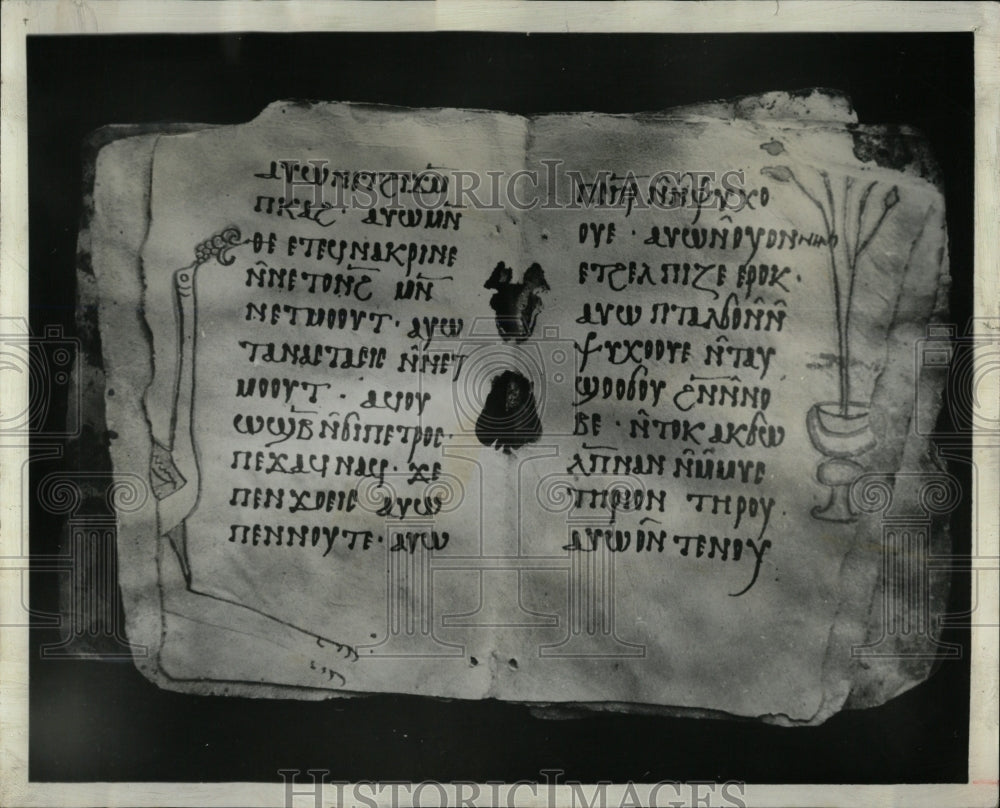 ⲁⲩⲱⲛⲉⲧϩⲓϫⲙ̄
ⲡⲕⲁϩ· ⲁⲩⲱⲙⲛ̄
ⲑⲉ ⲉⲧⲉϥⲛⲁⲕⲣⲓⲛⲉ
ⲛ̄ⲛⲉⲧⲟⲛϩ̄ ⲙⲛ̄
ⲛⲉⲧⲙⲟⲟⲩⲧ· ⲁⲩⲱ
ⲧⲁⲛⲁⲥⲧⲁⲥⲓⲥ ⲛ̄ⲛⲉⲧ
ⲙⲟⲟⲩⲧ· ⲁϥⲟⲩ
ⲱϣⲃ̄ ⲛ̄ϭⲓⲡⲉⲧⲣⲟⲥ·
ⲡⲉϫⲁϥⲛⲁϥ· ϫⲉ
ⲡⲉⲛϫⲟⲉⲓⲥ ⲁⲩⲱ
ⲡⲉⲛⲛⲟⲩⲧⲉ· ⲁⲩⲱ
ⲡⲥⲏ̄ⲣ̄ ⲛ̄ⲛ̄ⲯⲩⲭⲟ
ⲟⲩⲉ· ⲁⲩⲱⲛ̄ⲟⲩⲟⲛⲛⲓⲙ
ⲉⲧϩⲉⲗⲡⲓⲍⲉ ⲉⲣⲟⲕ·
ⲁⲩⲱ ⲡⲧⲁⲗϭⲟⲛ̄ⲛ̄
ⲯⲩⲭⲟⲟⲩⲉ ⲛ̄ⲧⲁⲩ
ϣⲟⲟϭⲟⲩ ϩⲛ̄ⲛ̄ⲛⲟ
ⲃⲉ· ⲛ̄ⲧⲟⲕ ⲁⲕϭⲱ
ⲗⲡ̄ⲛⲁⲛ ⲛ̄ⲙ̄ⲙⲩⲥ
ⲧⲏⲣⲓⲟⲛ ⲧⲏⲣⲟⲩ·
ⲁⲩⲱⲟⲛ̄ ⲧⲉⲛⲟⲩ
HISTORIC IMAGES
HISTORIC IMAGES